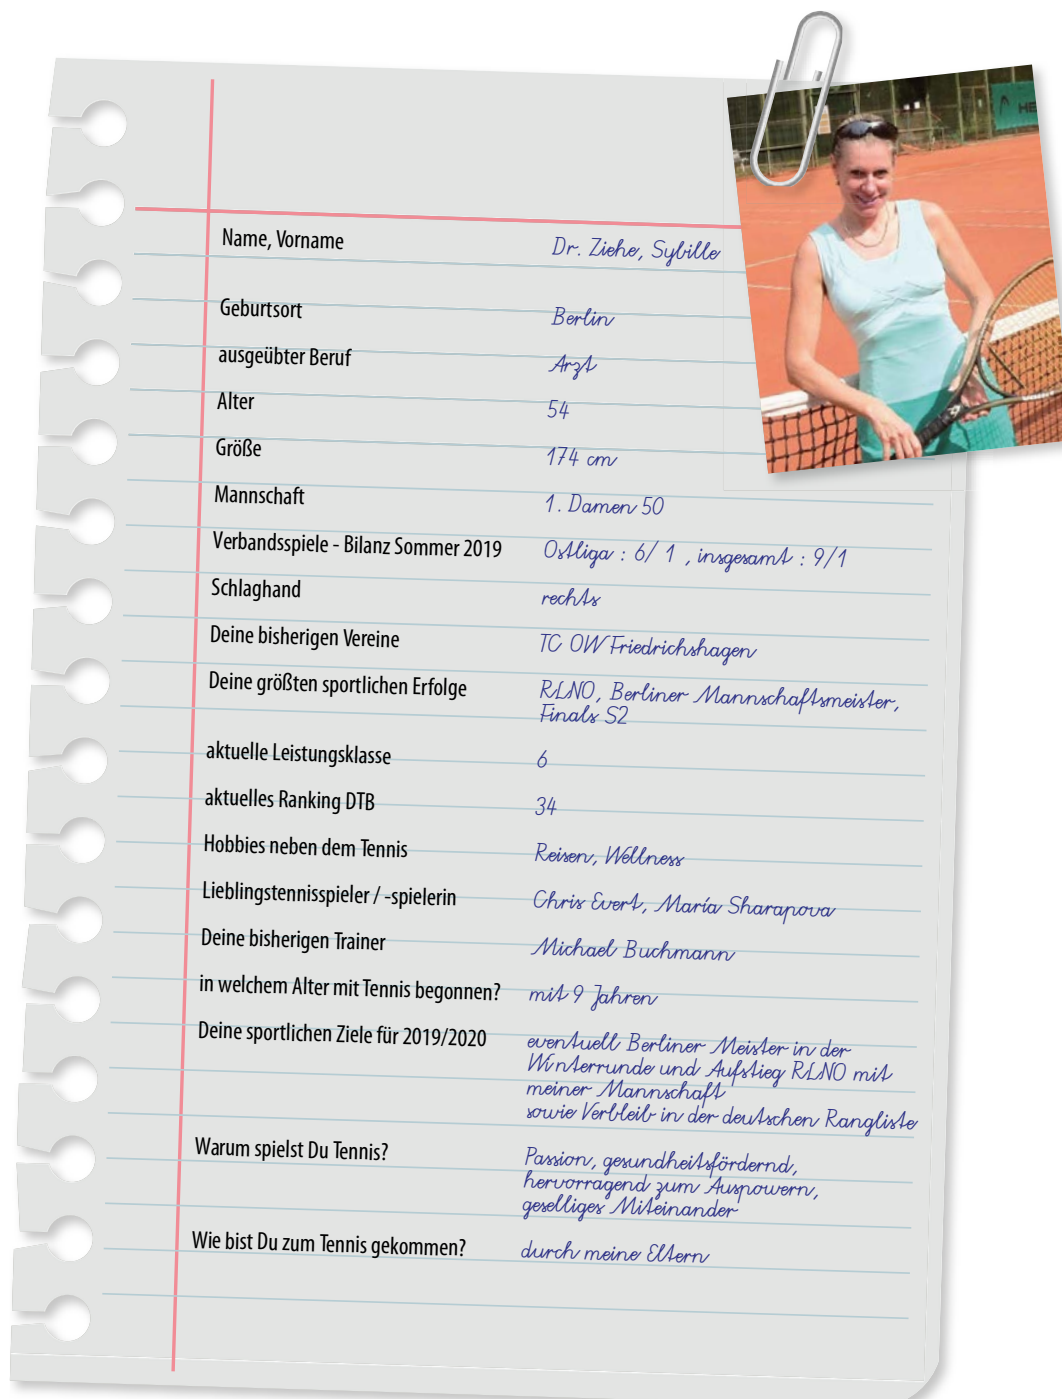 Name, Vorname Dr. Ziehe, Sybille
Geburtsort Berlin
ausgeübter Beruf Arzt
Alter 54
Größe 174 cm
Mannschaft 1. Damen 50
Verbandsspiele - Bilanz Sommer 2019 Ostliga : 6/ 1 , insgesamt : 9/1
Schlaghand rechts
Deine bisherigen Vereine TC OW Friedrichshagen
Deine größten sportlichen Erfolge RLNO, Berliner Mannschaftsmeister,
Finals S2
aktuelle Leistungsklasse 6
aktuelles Ranking DTB 34
Hobbies neben dem Tennis Reisen, Wellness
Lieblingstennisspieler / -spielerin Chris Evert, María Sharapova
Deine bisherigen Trainer Michael Buchmann
in welchem Alter mit Tennis begonnen? mit 9 Jahren
Deine sportlichen Ziele für 2019/2020 eventuell Berliner Meister in der
Winterrunde und Aufstieg RLNO mit
meiner Mannschaft
sowie Verbleib in der deutschen Rangliste
Warum spielst Du Tennis? Passion, gesundheitsfördernd,
hervorragend zum Auspowern,
geselliges Miteinander
Wie bist Du zum Tennis gekommen? durch meine Eltern